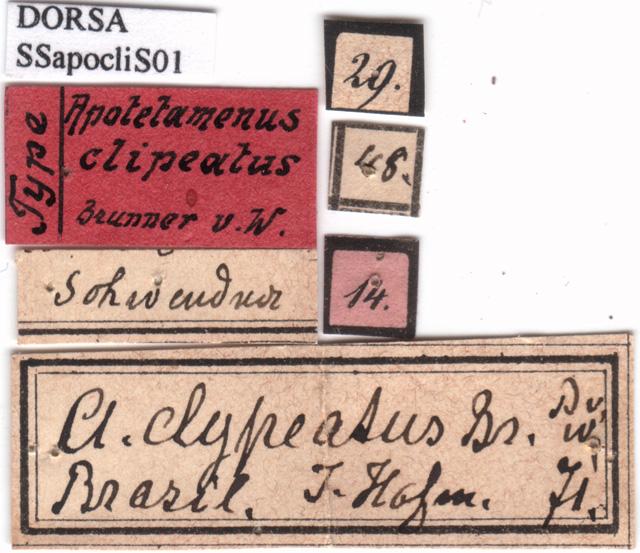 DORSA
SSapocliS01
Type
Apotetamenus
clipeatus
Brunner v. W.
29.
48.
14.
A. clypeatus Br.
Brazil. J. Hofm.